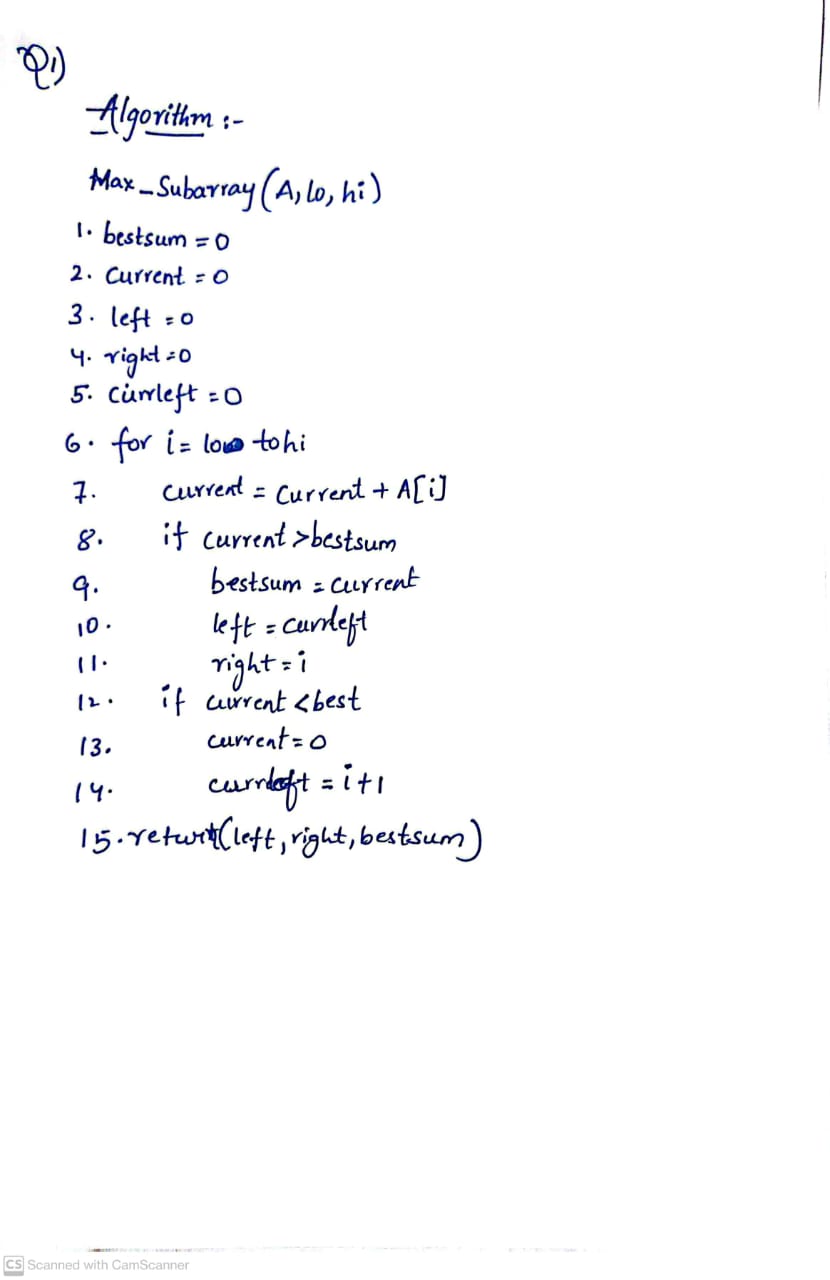 Q1)
Algorithm :-
Max_Subarray (A, lo, hi)
1. bestsum = 0
2. Current = 0
3. left = 0
4. right = 0
5. currleft = 0
6. for i = lo to hi
7. current = Current + A[i]
8. if current > bestsum
9. bestsum = current
10. left = currleft
11. right = i
12. if current < best
13. current = 0
14. currleft = i+1
15. return (left, right, bestsum)
CS Scanned with CamScanner